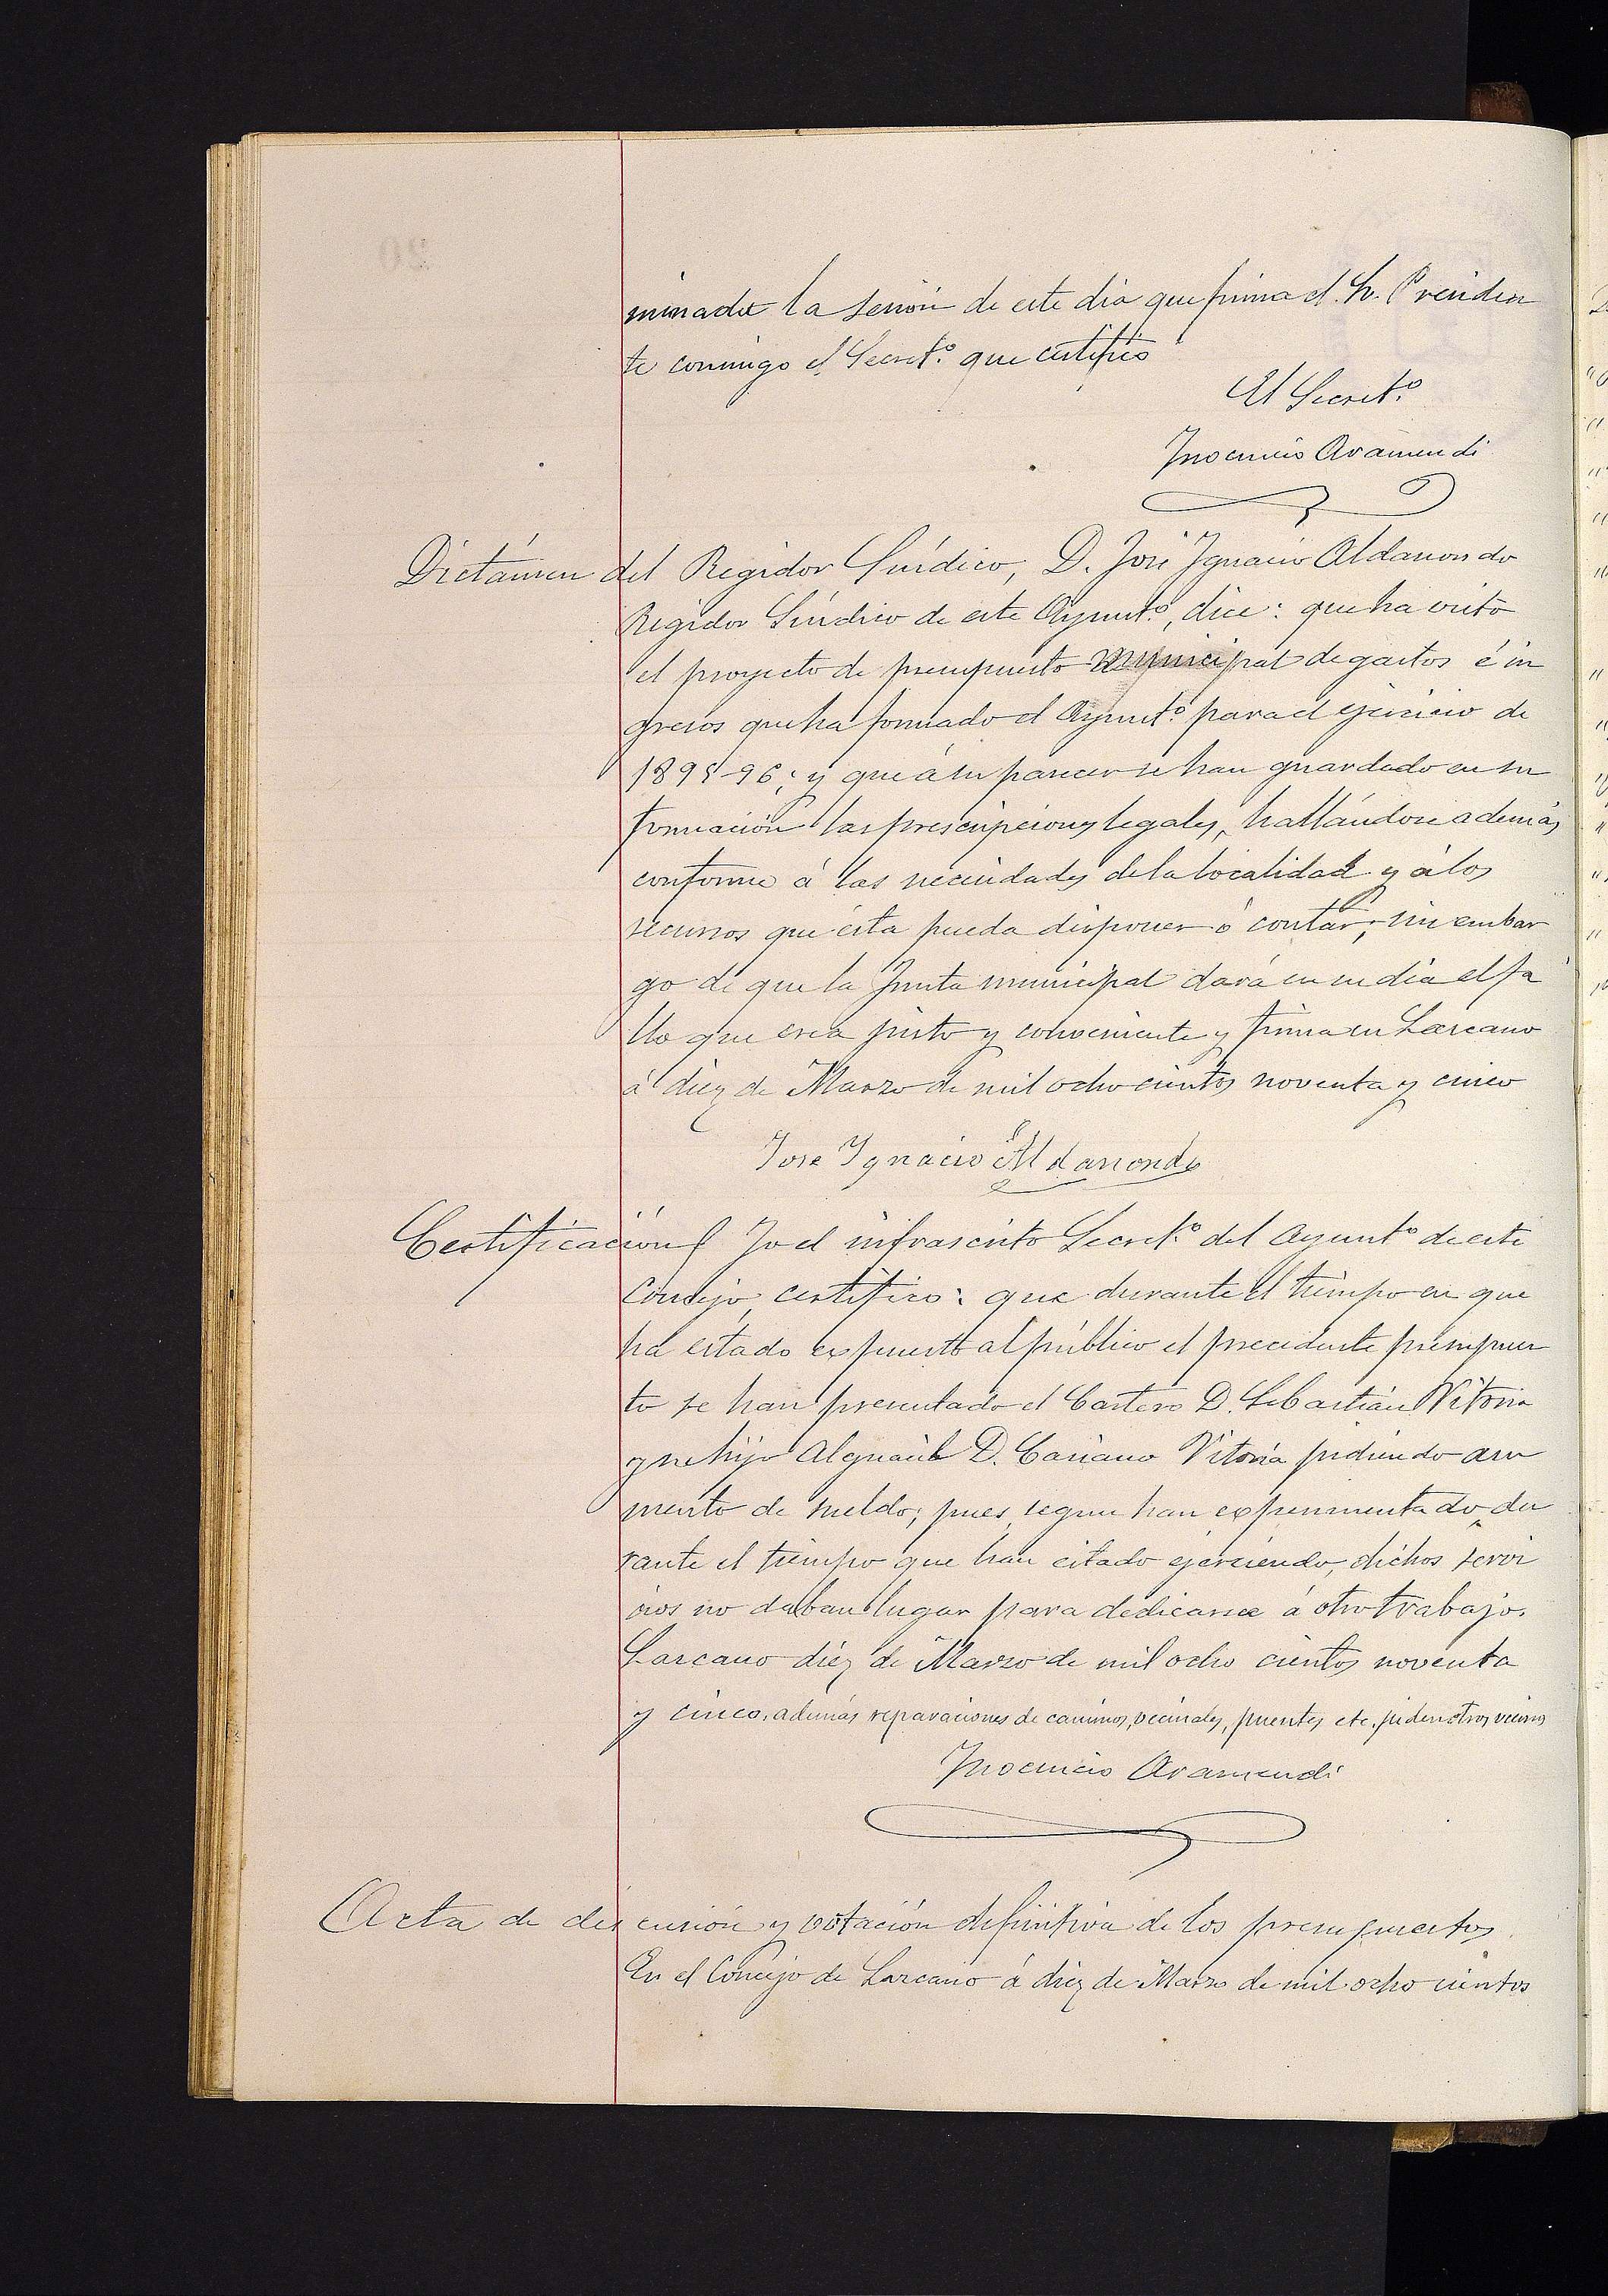 minada la sesión de este dia que firma el Sr. Presiden
te conmigo el Secret.º que certifico
El Secret.º
Inocencio Aramendi
Dictámen del Regidor Síndico, D. José Ignacio Aldanondo
Regidor Síndico de este Ayunt.º, dice: que ha visto
el proyecto de presupuesto municipal de gastos é in
gresos que ha formado el Ayunt.º para el ejercicio de
1895-96; y que á su parecer se han guardado en su
formación las prescripciones legales, hallándose además
conforme á las necesidades de la localidad y á los
recursos que ésta pueda disponer ó contar; sin embar
go de que la Junta municipal dará en su dia el fa
llo que crea justo y conveniente y firma en Lazcano
á diez de Marzo de mil ocho cientos noventa y cinco
Jose Ignacio Aldanondo
Certificación Yo el infrascrito Secret.º del Ayunt.º de este
Concejo, certifico: que durante el tiempo en que
ha estado expuesto al público el precedente presupues
to se han presentado el Cartero D. Sebastián Vitoria
y su hijo Alguacil D. Casiano Vitoria pidiendo au
mento de sueldo; pues, segun han experimentado du
rante el tiempo que han estado ejerciendo, dichos servi
cios no daban lugar para dedicarse á otro trabajo.
Lazcano diez de Marzo de mil ocho cientos noventa
y cinco, además reparaciones de caminos, vecinales, puentes etc. piden otros vecinos
Inocencio Aramendi
Acta de discusión y votación definitiva de los presupuestos
En el Concejo de Lazcano á diez de Marzo de mil ocho cientos